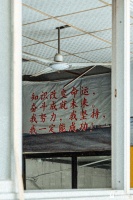 知识改变命运，
奋斗成就未来，
我努力，我坚持，
我一定能成功！